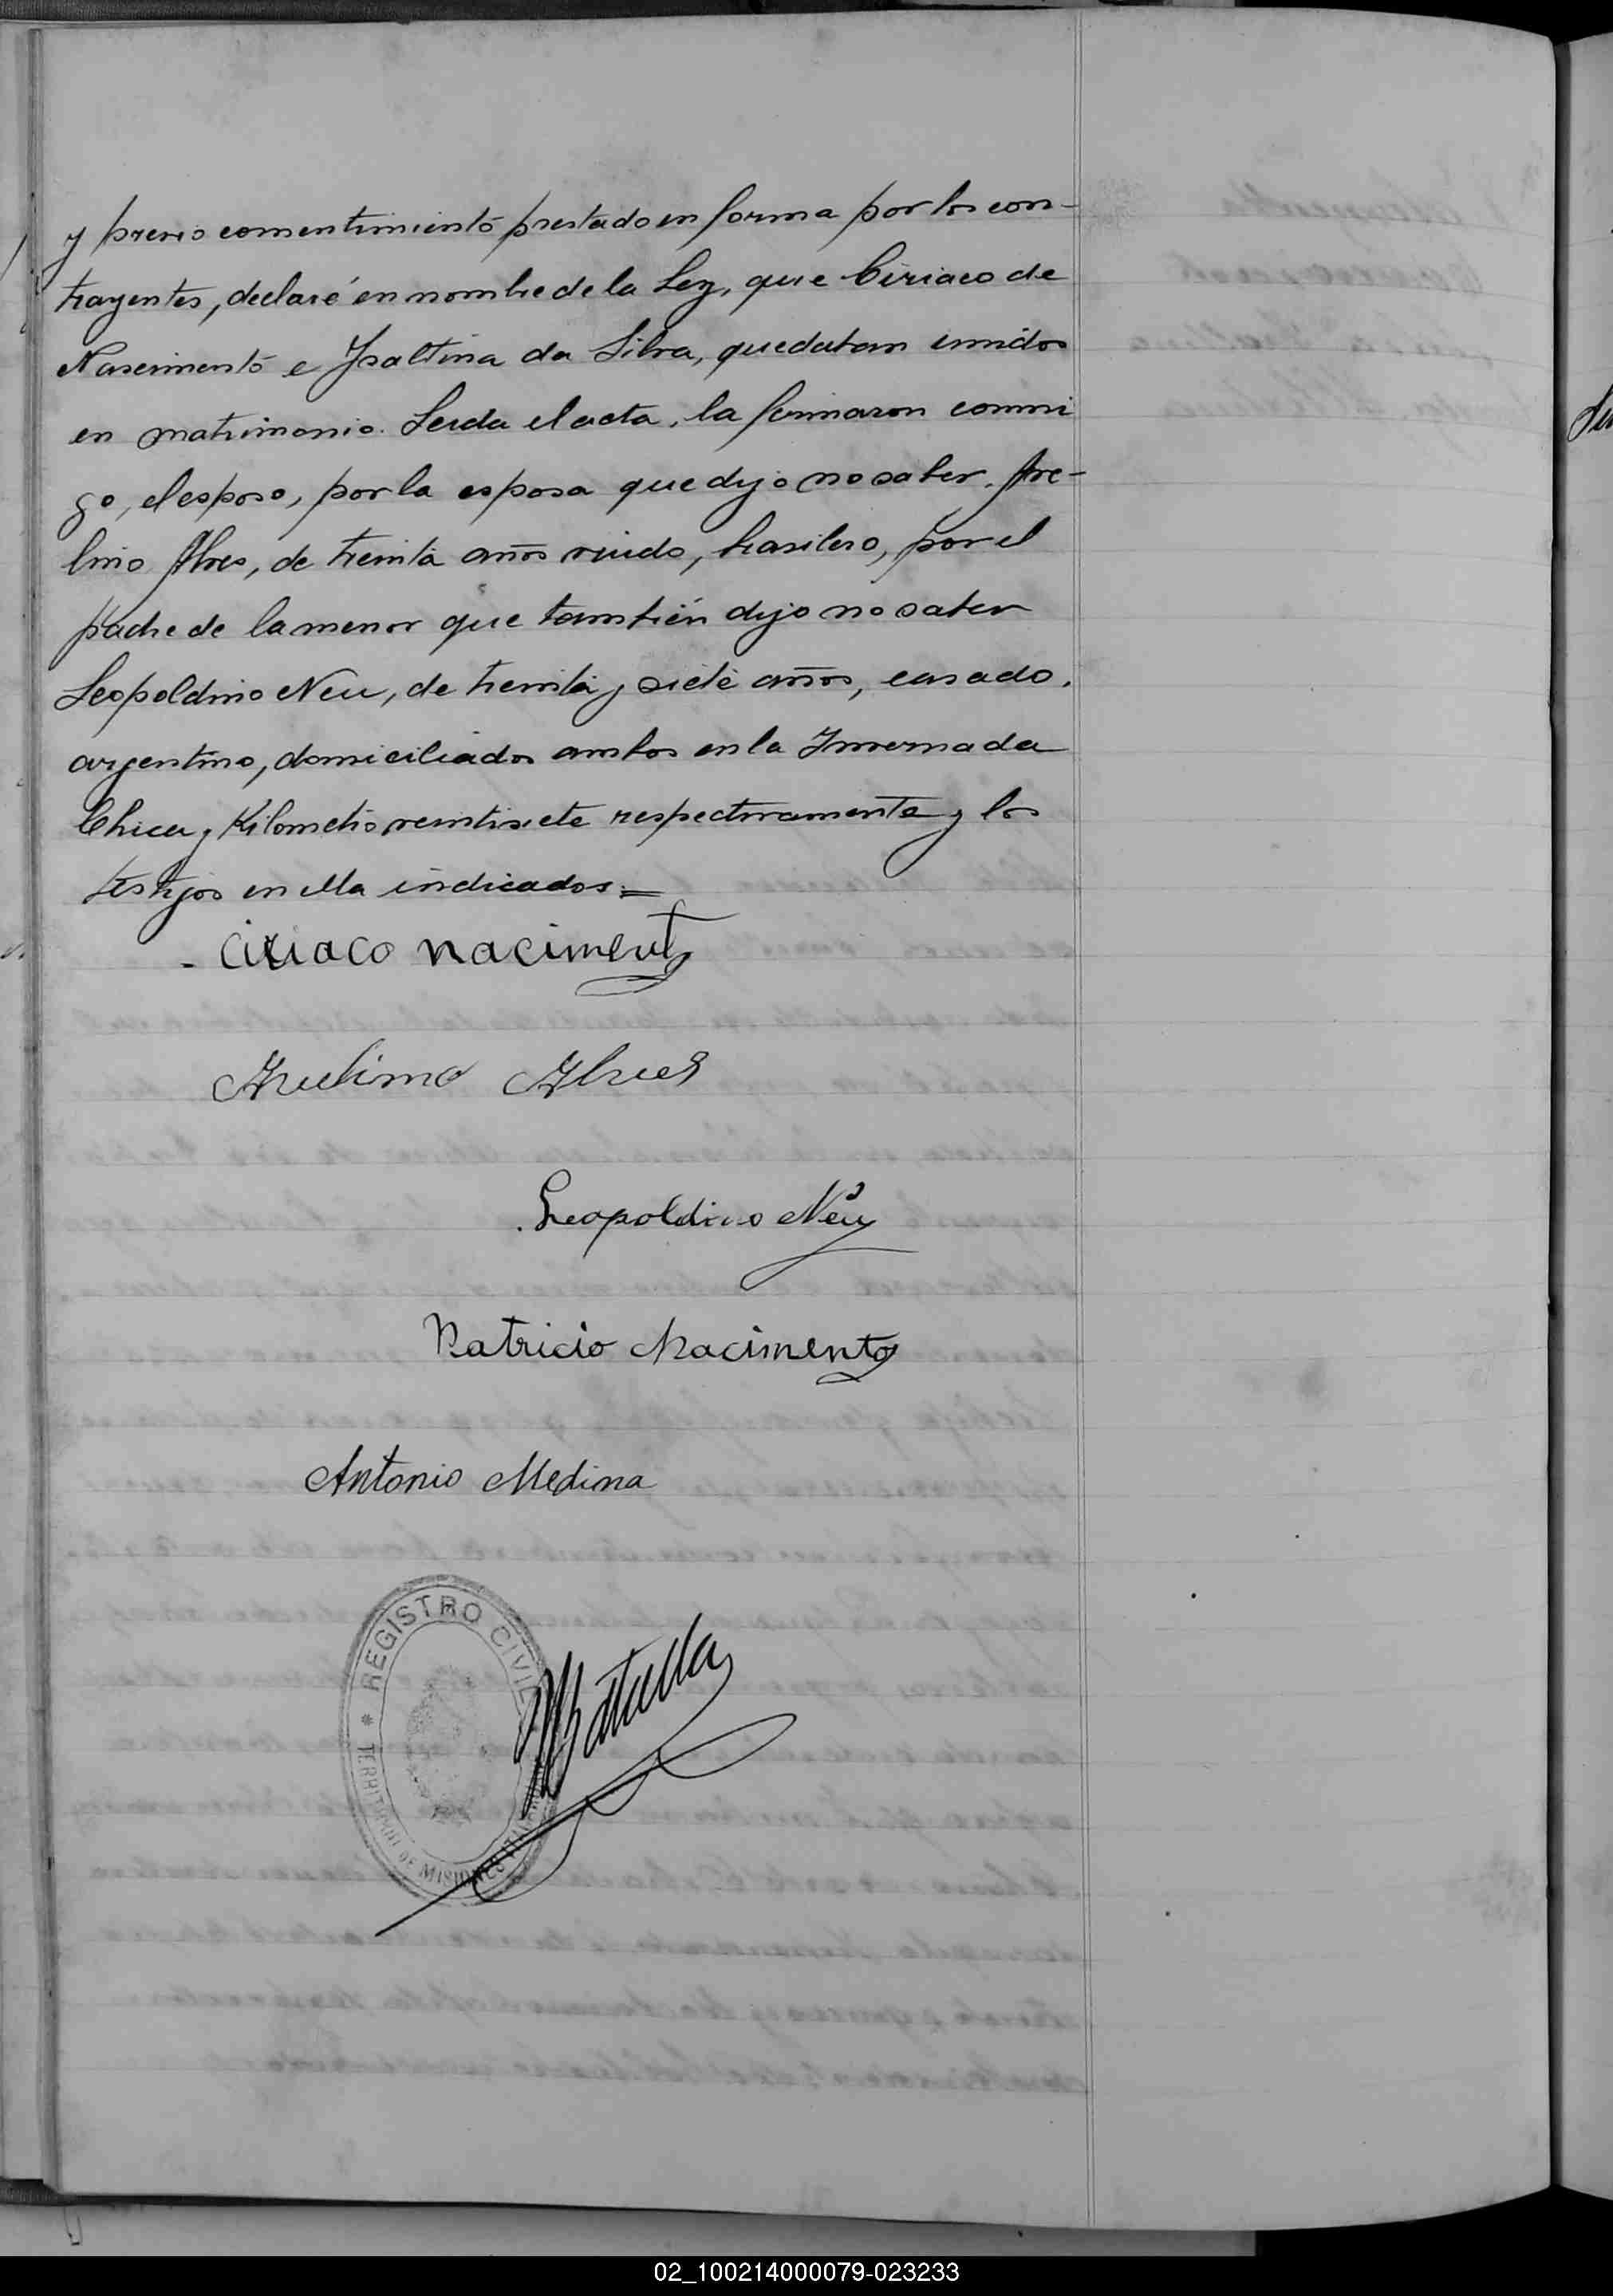 y previo comentimiento prestado en forma por los con-
trayentes, declaré en nombre de la Ley, que Ciriaco de
Nascimento e Ysaltina da Silva, quedaban unidos
en matrimonio. Leida el acta, la firmaron conmi
go, el esposo, por la esposa que dijo no saber, Are-
lino Alves, de treinta años viudo, brasilero, por el
padre de la menor que también dijo no saber
Leopoldino Neu, de treinta y siete años, casado,
argentino, domiciliados ambos en la Invernada
Chica y Kilometro veintisiete respectivamente y los
testijos en ella indicados.=
Ciriaco nacimento
Arelino Alves
Leopoldino Neu
Patricio Nacimento
Antonio Medina
REGISTRO CIVIL
TERRITORIO DE MISIONES
Sen
02_100214000079-023233